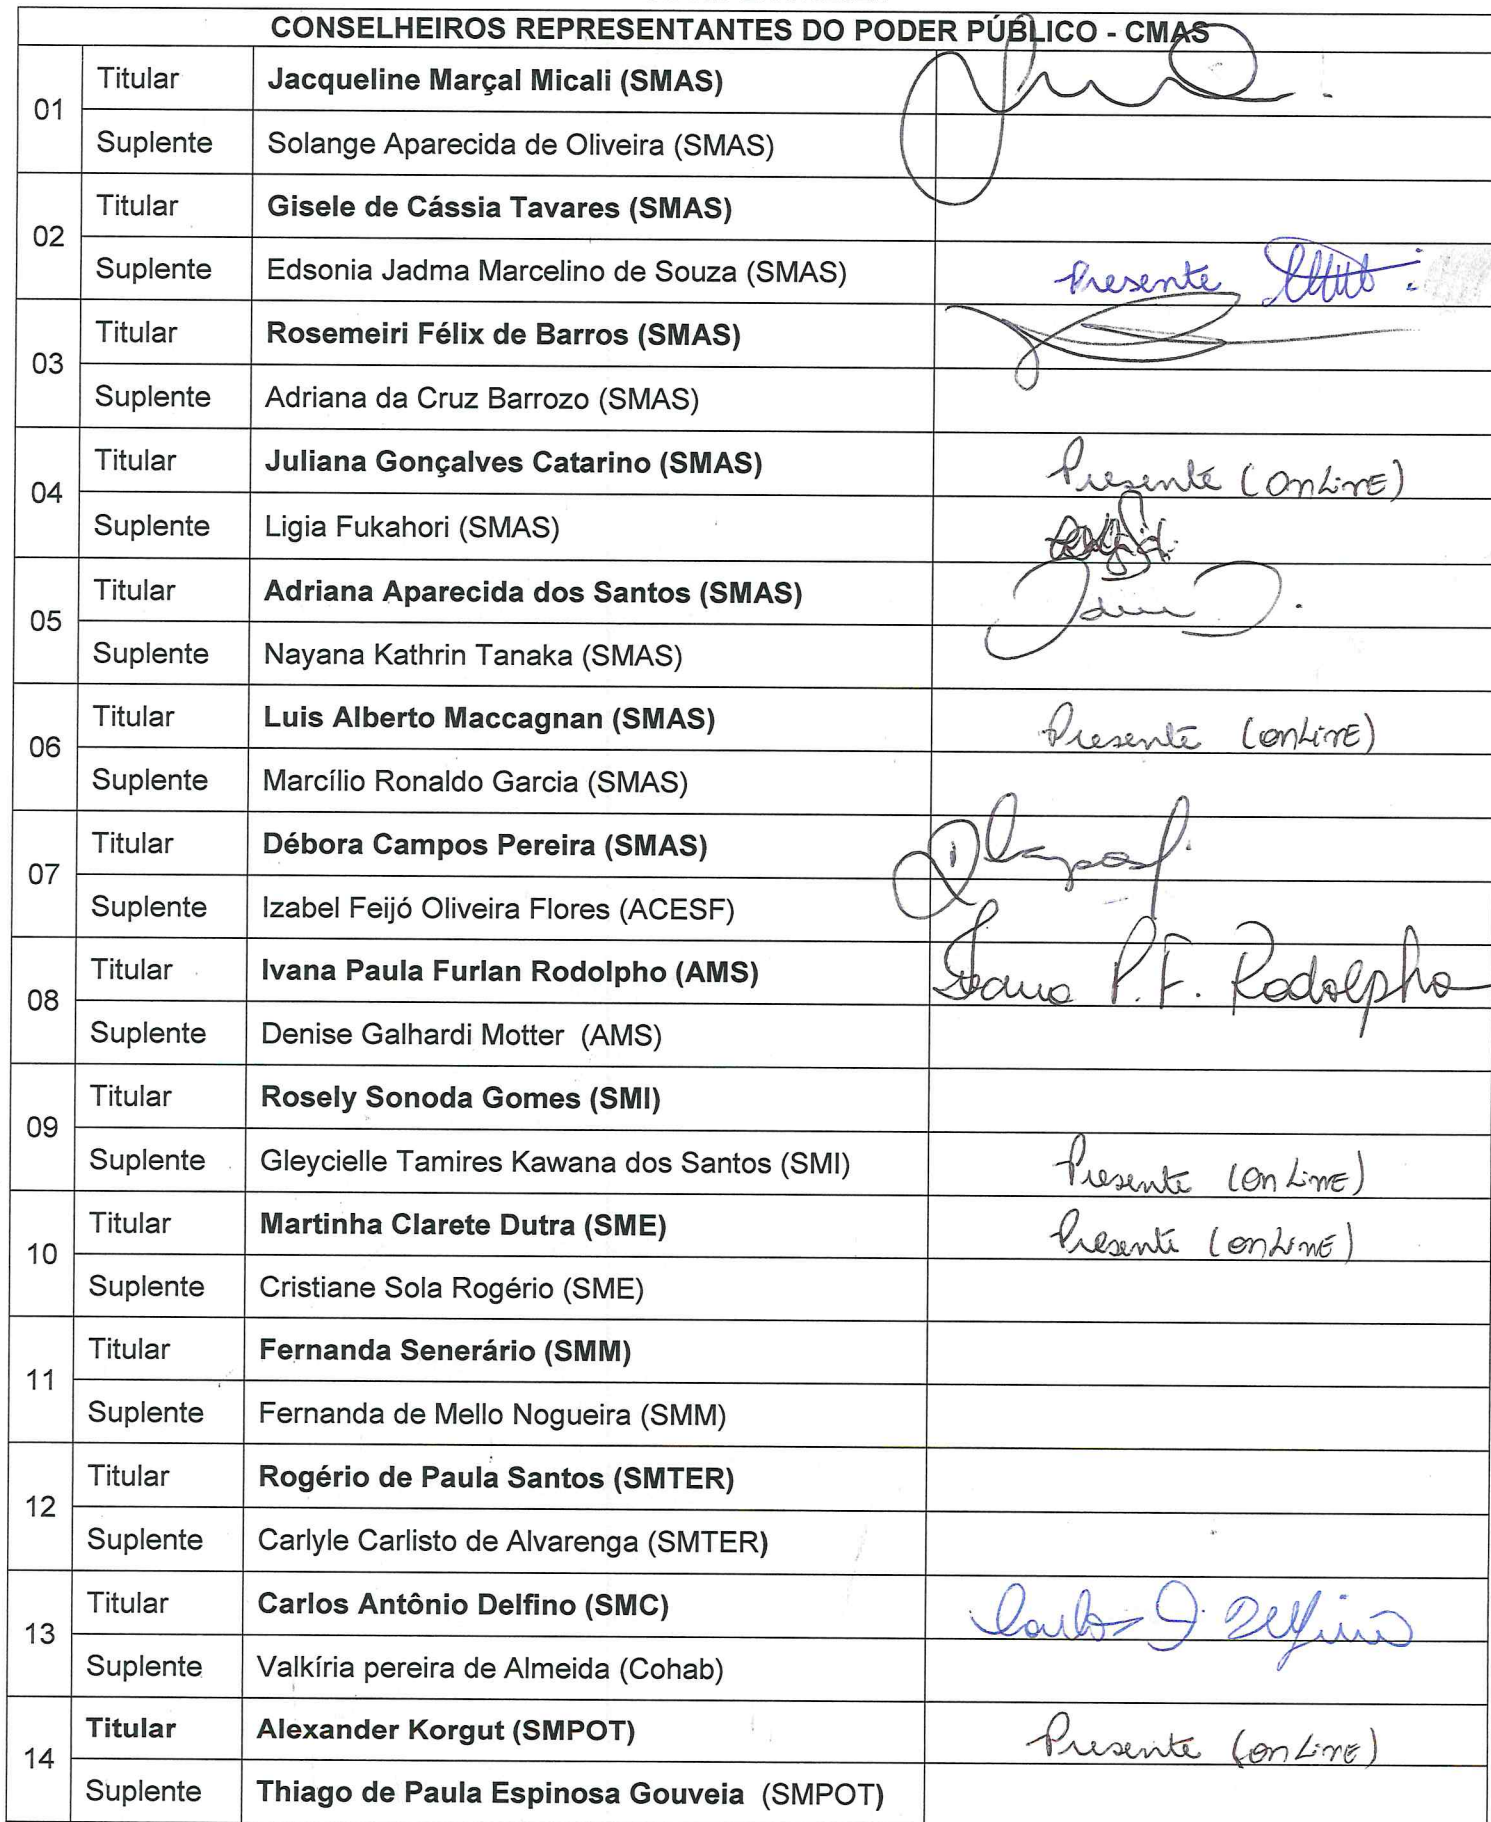 CONSELHEIROS REPRESENTANTES DO PODER PÚBLICO - CMAS
01
Titular Jacqueline Marçal Micali (SMAS)
Suplente Solange Aparecida de Oliveira (SMAS)
02
Titular Gisele de Cássia Tavares (SMAS)
Suplente Edsonia Jadma Marcelino de Souza (SMAS) Presente
03
Titular Rosemeiri Félix de Barros (SMAS)
Suplente Adriana da Cruz Barrozo (SMAS)
04
Titular Juliana Gonçalves Catarino (SMAS) Presente (online)
Suplente Ligia Fukahori (SMAS)
05
Titular Adriana Aparecida dos Santos (SMAS)
Suplente Nayana Kathrin Tanaka (SMAS)
06
Titular Luis Alberto Maccagnan (SMAS) Presente (online)
Suplente Marcílio Ronaldo Garcia (SMAS)
07
Titular Débora Campos Pereira (SMAS)
Suplente Izabel Feijó Oliveira Flores (ACESF)
08
Titular Ivana Paula Furlan Rodolpho (AMS) Ivana P. F. Rodolpho
Suplente Denise Galhardi Motter (AMS)
09
Titular Rosely Sonoda Gomes (SMI)
Suplente Gleycielle Tamires Kawana dos Santos (SMI) Presente (online)
10
Titular Martinha Clarete Dutra (SME) Presente (online)
Suplente Cristiane Sola Rogério (SME)
11
Titular Fernanda Senerário (SMM)
Suplente Fernanda de Mello Nogueira (SMM)
12
Titular Rogério de Paula Santos (SMTER)
Suplente Carlyle Carlisto de Alvarenga (SMTER)
13
Titular Carlos Antônio Delfino (SMC) Carlos A. Delfino
Suplente Valkíria pereira de Almeida (Cohab)
14
Titular Alexander Korgut (SMPOT) Presente (online)
Suplente Thiago de Paula Espinosa Gouveia (SMPOT)